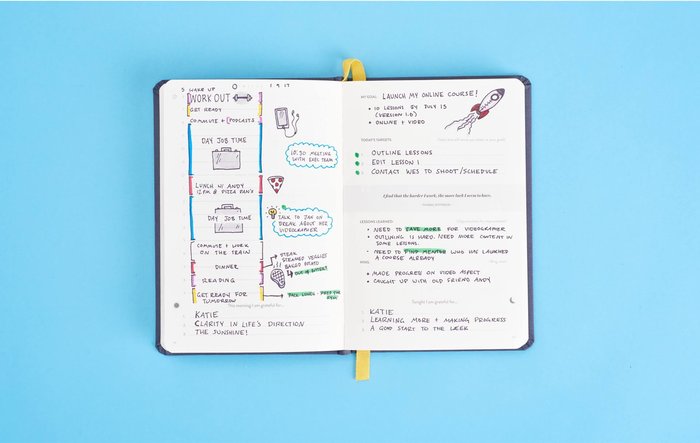 5 WAKE UP
1 9 17
WORK OUT
GET READY
COMMUTE + PODCASTS
DAY JOB TIME
10:30 MEETING
WITH EXEC TEAM
LUNCH W/ ANDY
12 P.M. @ PIZZA PAN'S
DAY JOB TIME
TALK TO JAN ON
BREAK ABOUT HER
VIDEOGRAPHER
COMMUTE + WORK
ON THE TRAIN
STEAK
STEAMED VEGGIES
BAKED POTATO
DINNER
OUT BY
READING
GET READY FOR
TOMORROW
PACK LUNCH
This morning I am grateful for...
KATIE
CLARITY IN LIFE'S DIRECTION
THE SUNSHINE!
MY GOAL: LAUNCH MY ONLINE COURSE!
10 LESSONS BY JULY 15
(VERSION 1.0)
ONLINE + VIDEO
TODAY'S TARGETS
OUTLINE LESSONS
EDIT LESSON 1
CONTACT WES TO SHOOT/SCHEDULE
I find that the harder I work, the more luck I seem to have.
LESSONS LEARNED
NEED TO SAVE MORE FOR VIDEOGRAPHER
OUTLINING IS HARD. NEED MORE CONTENT IN
SOME LESSONS.
NEED TO FIND MENTOR WHO HAS LAUNCHED
A COURSE ALREADY
WINS
MADE PROGRESS ON VIDEO ASPECT
CAUGHT UP WITH OLD FRIEND ANDY
Tonight I am grateful for...
KATIE
LEARNING MORE + MAKING PROGRESS
A GOOD START TO THE WEEK